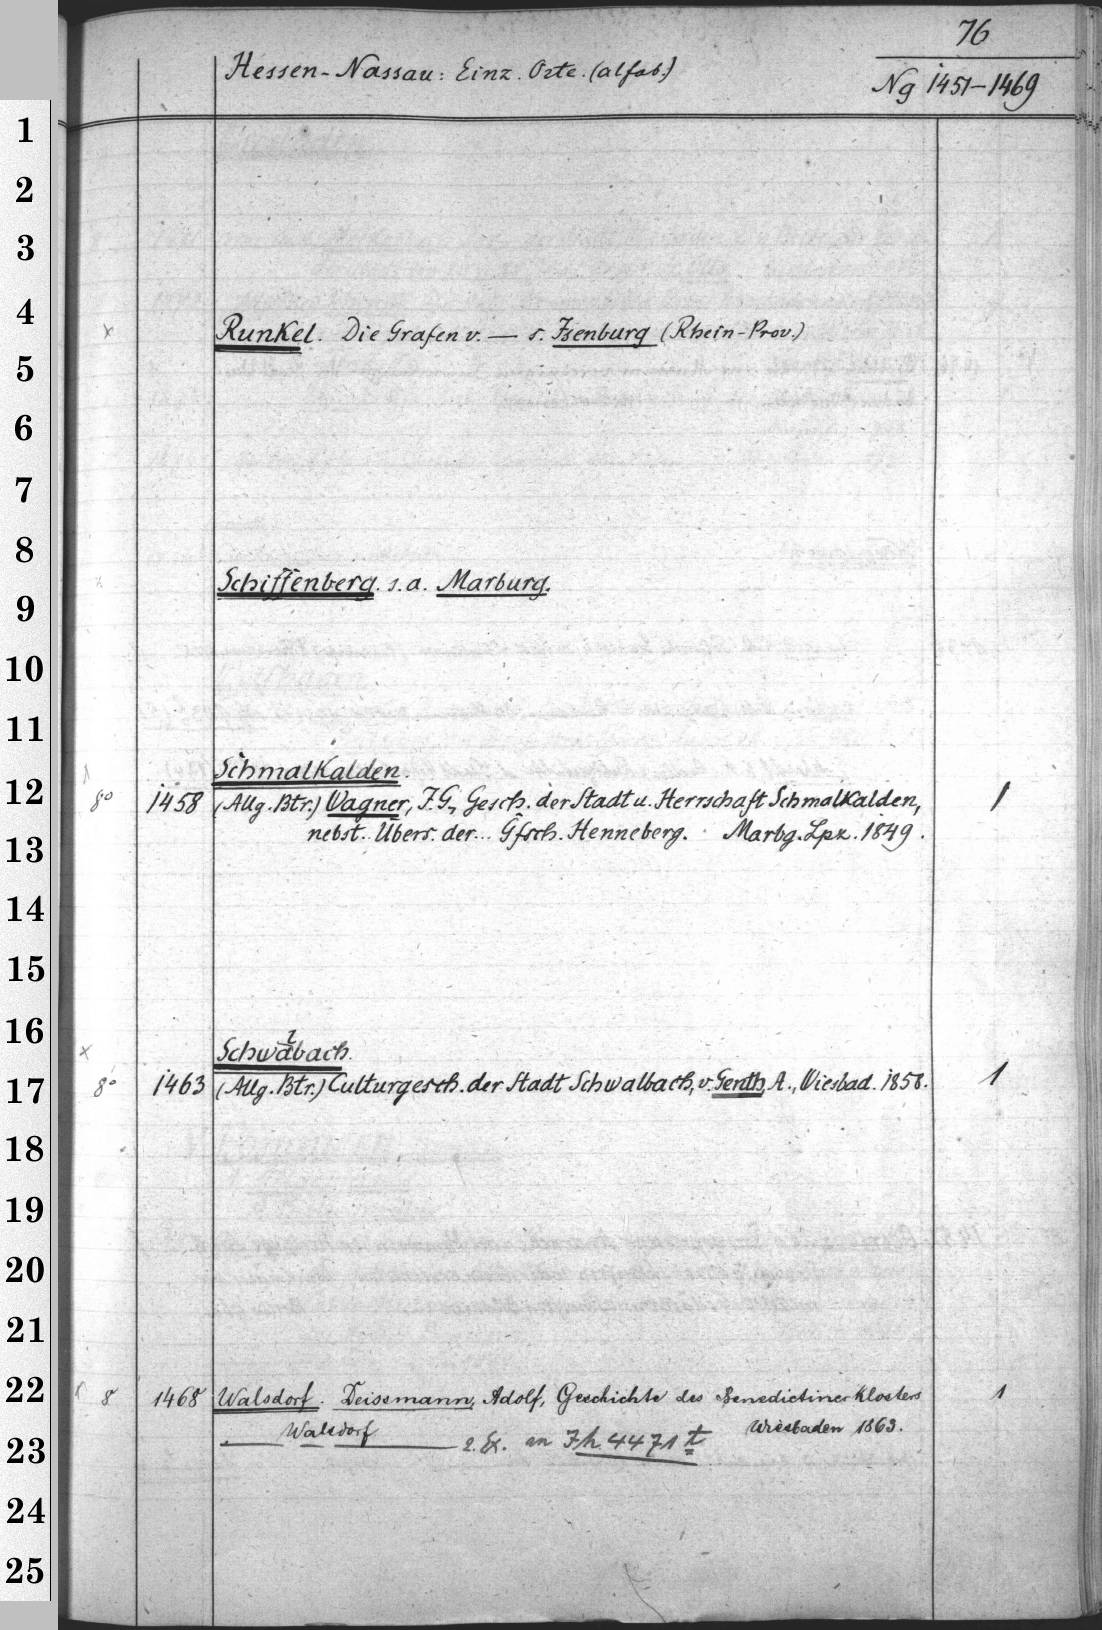 76
Hessen-Nassau: Einz. Orte. (alfab.)
Ng 1451-1469
1
2
3
4
x Runkel. Die Grafen v. — s. Isenburg (Rhein-Prov.)
5
6
7
8
Schiffenberg. s. a. Marburg.
9
10
11
Schmalkalden
12
8° 1458 (Allg. Btr.) Wagner, J. G., Gesch. der Stadt u. Herrschaft Schmalkalden, 1
nebst.. Übers. der... Gfsch. Henneberg. Marbg. Lpz. 1849.
13
14
15
16
x Schwalbach.
17
8° 1463 (Allg. Btr.) Culturgesch. der Stadt Schwalbach, v. Genth, A., Wiesbad. 1858. 1
18
19
20
21
22
8 1468 Walsdorf. Deissmann, Adolf, Geschichte des Benedictinerklosters 1
Walsdorf Wiesbaden 1863.
23
2. Ex. in Fh 4471 t
24
25